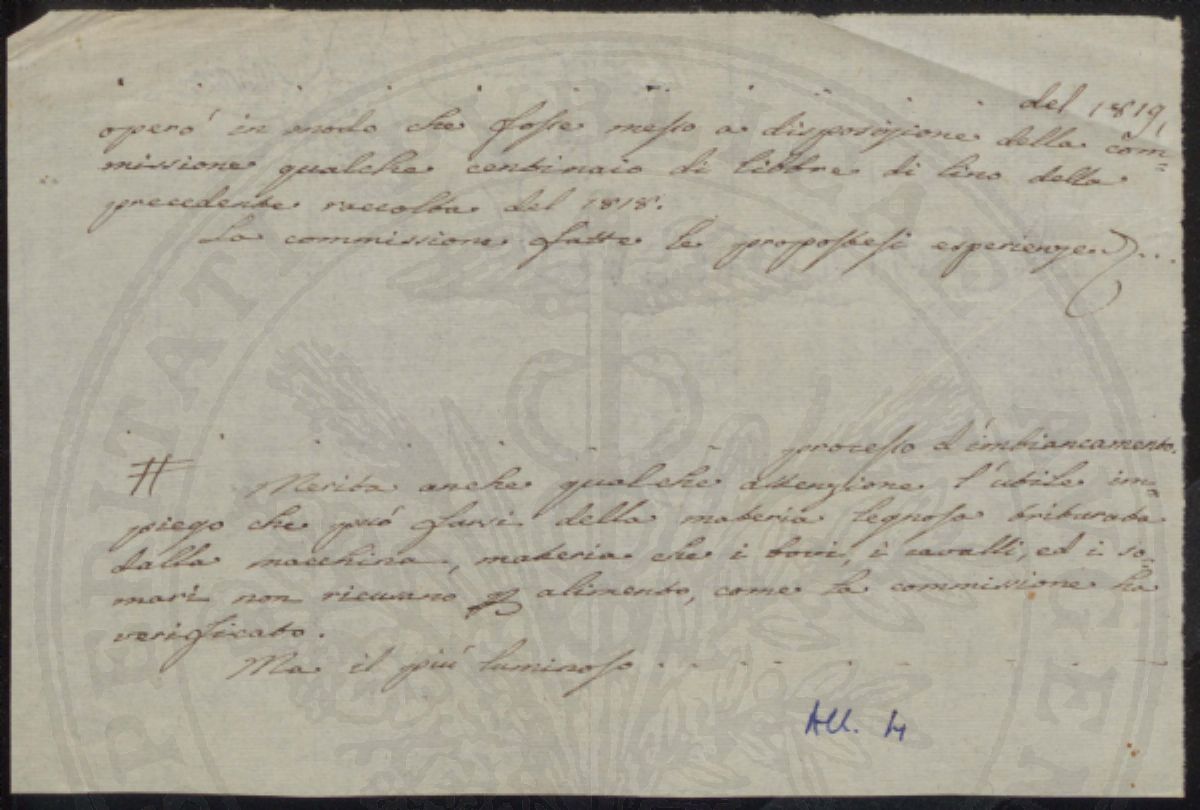 del 1819,
operò in modo che fosse messo a disposizione della com=
missione qualche centinaio di libbre di lino della
precedente raccolta del 1818.
La commissione fatte le propostesi esperienze ...
processo d'imbiancamento.
# Merita anche qualche attenzione l'utile im=
piego che può farsi della materia legnosa triturata
dalla macchina, materia che i bovi, i cavalli, ed i so=
mari non ricusano p alimento, come la commissione ha
verificato.
Ma il più luminoso . - - - - - -
All. 4